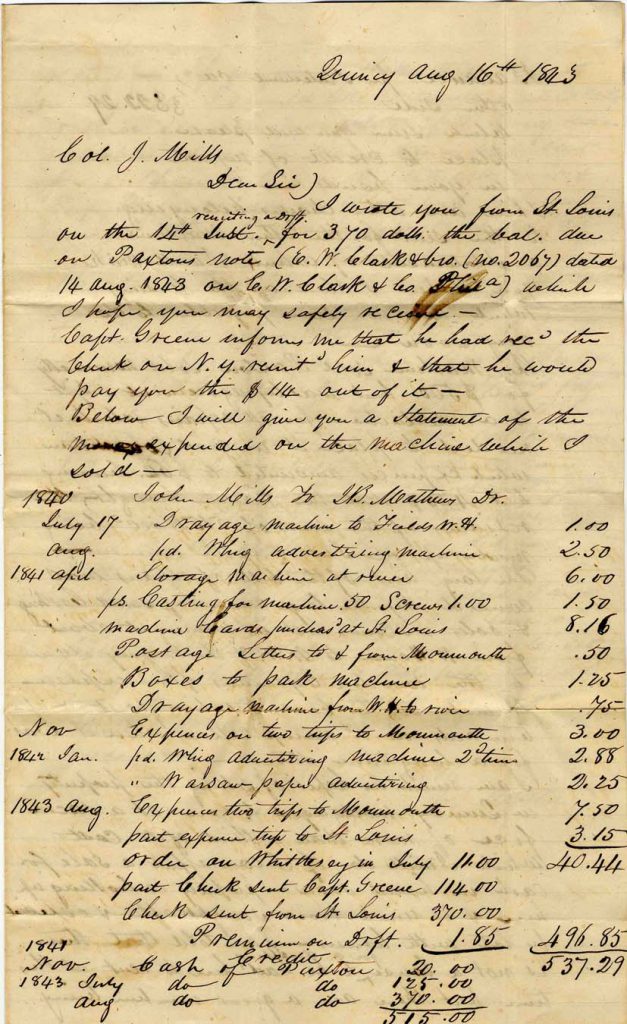 Quincy Aug 16th 1843
Col. J. Mills
Dear Sir)
I wrote you from St. Louis
on the 14th Inst. remitting a Drft. for 370 dolls. the bal. due
on Paxtons note (E. W. Clark & bro. (no. 2067) dated
14 Aug. 1843 on E. W. Clark & Co. Phila) which
I hope you may safely receive. —
Capt. Greene informs me that he had recd the
Check on N.Y. remitd him & that he would
pay you the $114 out of it —
Below I will give you a Statement of the
expended on the machine which I
sold —
1840 John Mills To J.B. Mathews Dr.
July 17 Drayage machine to Fields W.H. 1.00
Aug. pd. Whig advertising machine 2.50
1841 April Storage machine at river 6.00
pd. Casting for machine .50 Screws 1.00 1.50
machine Cards purchasd at St. Louis 8.16
Postage Letters to & from Monmouth .50
Boxes to pack machine 1.25
Drayage machine from W.H. to river .75
Nov Expences on two trips to Monmouth 3.00
1842 Jan. pd. Whig advertising machine 2d time 2.88
" Warsaw paper advertising 2.25
1843 Aug. Expences two trips to Monmouth 7.50
part expense trip to St. Louis 3.15
order on Whittlesey in July 11.00 40.44
part Check sent Capt. Greene 114.00
Check sent from St. Louis 370.00
Premium on Drft. 1.85 496.85
Credit 537.29
1841
Nov. Cash of Paxton 20.00
1843 July do do 125.00
Aug do do 370.00
515.00